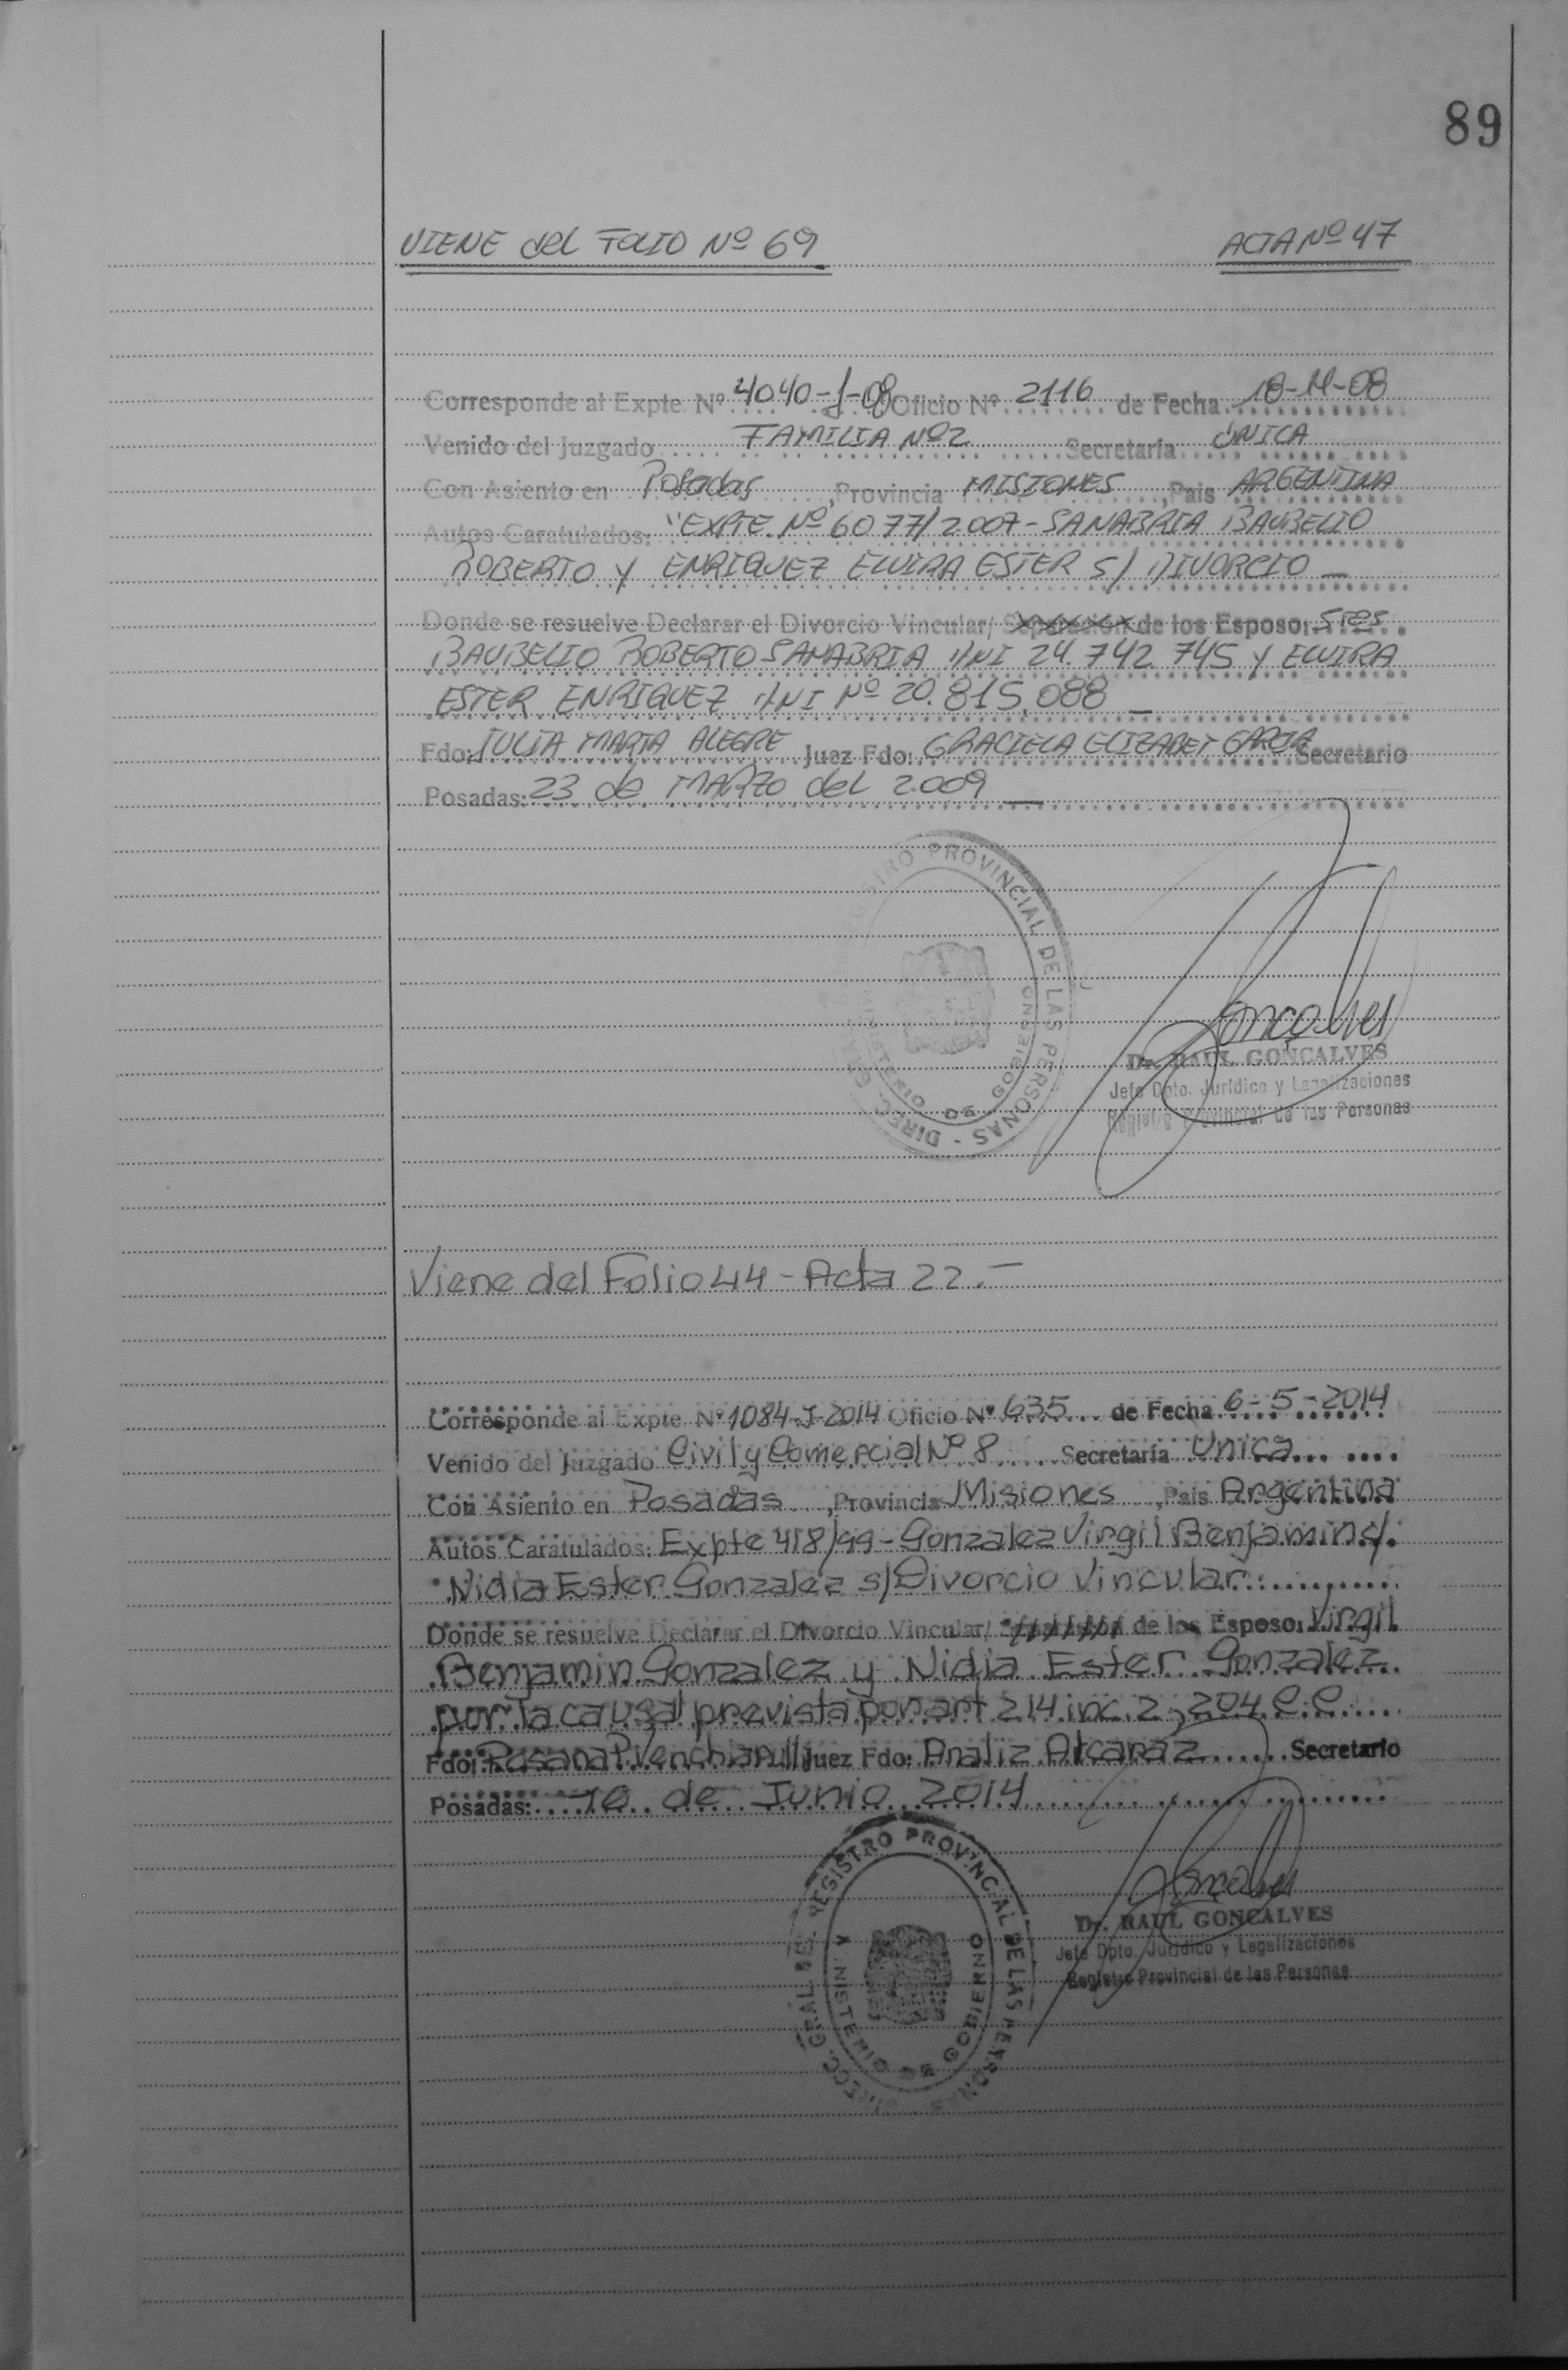 89
VIENE del FOLIO Nº 69 ACTA Nº 47
Corresponde al Expte Nº 4040-J-08 Oficio Nº 2116 de Fecha 18-11-08
Venido del Juzgado FAMILIA Nº2 Secretaría UNICA
Con Asiento en Posadas, Provincia MISIONES, Pais ARGENTINA
Autos Caratulados: "EXPTE. Nº 6077/2007-SANABRIA BAUBELIO
ROBERTO Y ENRIQUEZ ELVIRA ESTER S/ DIVORCIO
Donde se resuelve Declarar el Divorcio Vincular/ Separación de los Esposo: Sres
BAUBELIO ROBERTO SANABRIA DNI 24.742.745 Y ELVIRA
ESTER ENRIQUEZ DNI Nº 20.815.088
Fdo: JULIA MARTA ALEGRE Juez Fdo: GRACIELA ELIZABET GARCIA Secretario
Posadas: 23 de MARZO del 2009
REGISTRO PROVINCIAL DE LAS PERSONAS - DIREC. GRAL.
MINISTERIO DE GOBIERNO
Goncalves
Dr. RAUL GONCALVES
Jefe Dpto. Jurídico y Legalizaciones
Registro Provincial de las Personas
Viene del Folio 44 - Acta 22.-
Corresponde al Expte Nº 1084-J-2014 Oficio Nº 635 de Fecha 6-5-2014
Venido del Juzgado Civil y Comercial Nº 8 Secretaría Unica
Con Asiento en Posadas, Provincia Misiones, Pais Argentina
Autos Caratulados: Expte 418/99-Gonzalez Virgil Benjamin s/.
Nidia Ester Gonzalez s/Divorcio Vincular
Donde se resuelve Declarar el Divorcio Vincular/ de los Esposo: Virgil
Benjamin Gonzalez y Nidia Ester Gonzalez
por la causal prevista por art 214 inc. 2, 204 C.C.
Fdo: Rosana P. Venchiarutti Juez Fdo: Analiz Alcaraz Secretario
Posadas: 10 de Junio 2014
DIRECC. GRAL. DE REGISTRO PROVINCIAL DE LAS PERSONAS
MINISTERIO DE GOBIERNO
Dr. RAUL GONCALVES
Jefe Dpto. Jurídico y Legalizaciones
Registro Provincial de las Personas